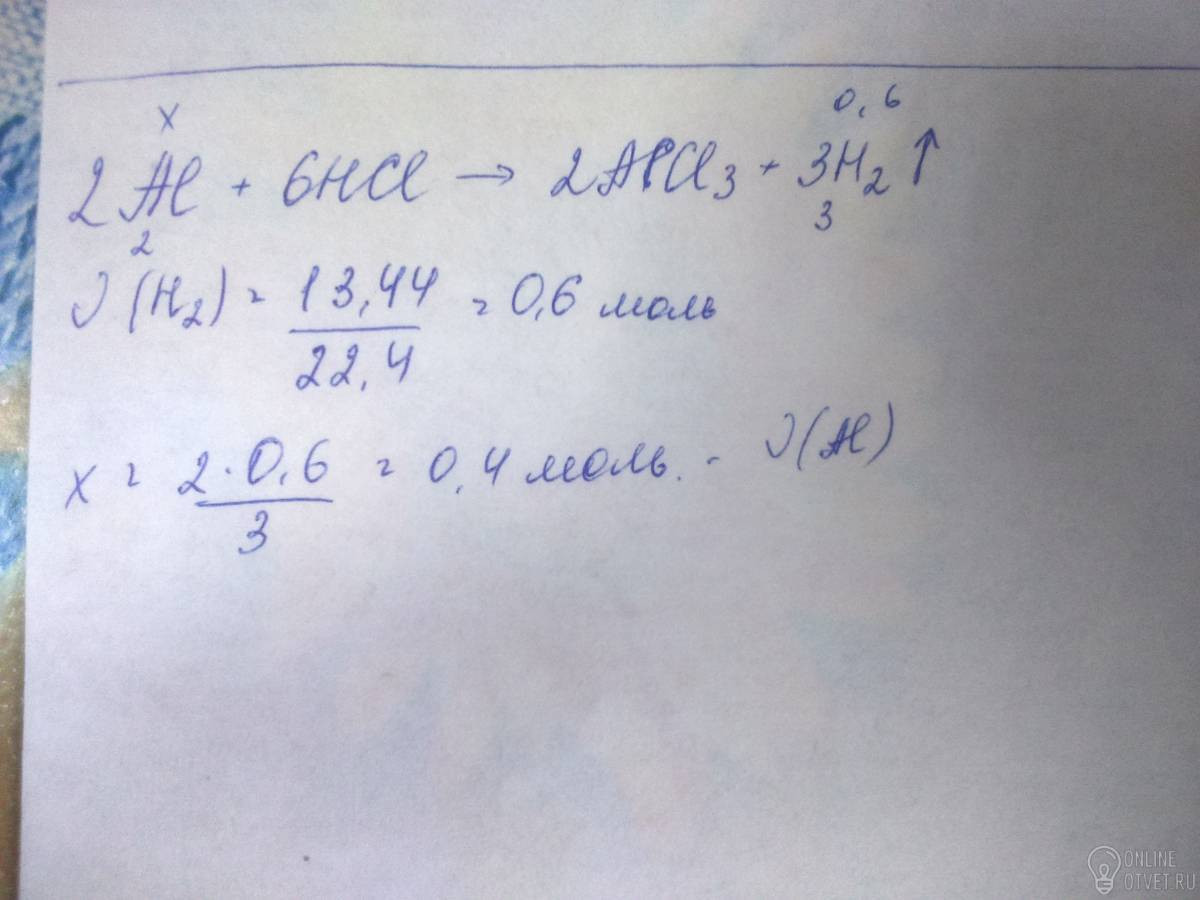 x 0,6
2Al + 6HCl → 2AlCl₃ + 3H₂↑
2 3
ν(H₂) = 13,44 / 22,4 = 0,6 моль
x = 2·0,6 / 3 = 0,4 моль. - ν(Al)
ONLINE
OTVET.RU